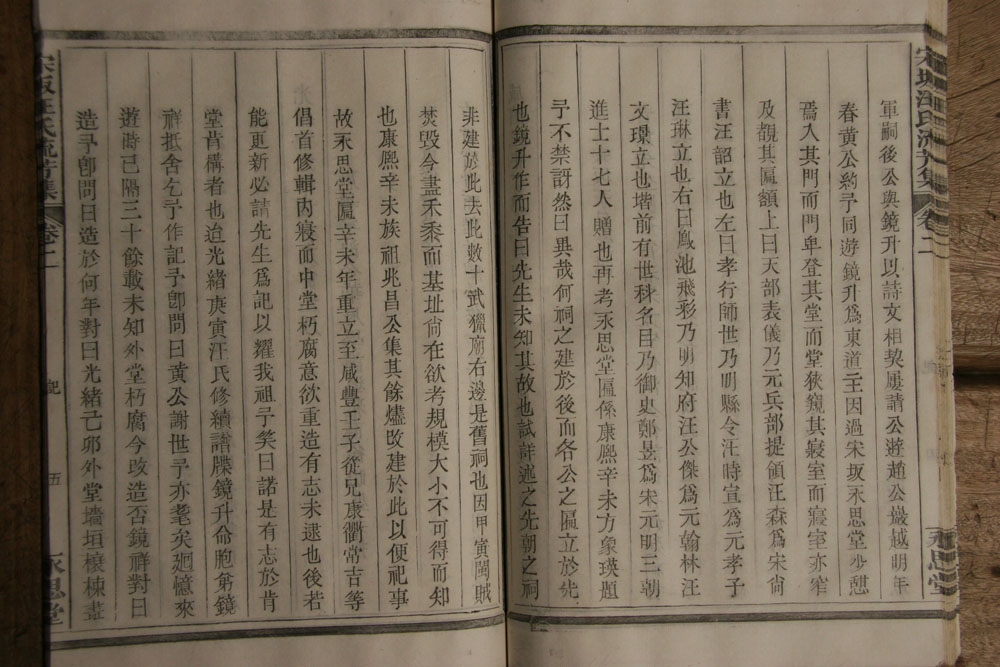 軍嗣後公與鏡升以詩文相契屢請公遊趙公巖越明年
春黃公約予同遊鏡升爲東道主因過宋坂永思堂少憇
焉入其門而門卑登其堂而堂狹窺其寢室而寢室亦窄
及觀其匾額上曰天部表儀乃元兵部提領汪森爲宋尙
書汪韶立也左曰孝行師世乃明縣令汪時宣爲元孝子
汪琳立也右曰鳳池飛彩乃明知府汪公傑爲元翰林汪
文璟立也堦前有世科名目乃御史鄭昱爲宋元明三朝
進士十七人贈也再考永思堂匾係康熙辛未方象瑛題
予不禁訝然曰異哉何祠之建於後而各公之匾立於先
也鏡升作而告曰先生未知其故也試詳述之先朝之祠
非建於此去此數十武獵廟右邊是舊祠也因甲寅閩賊
焚毁今盡禾黍而基址尙在欲考規模大小不可得而知
也康熙辛未族祖兆昌公集其餘燼改建於此以便祀事
故永思堂匾辛未年重立至咸豐壬子從兄康衢常吉等
倡首修輯內寢而中堂朽腐意欲重造有志未逮也後若
能更新必請先生爲記以耀我祖予笑曰諾是有志於肯
堂肯構者也迨光緒庚寅汪氏修續譜牒鏡升命胞弟鏡
祥抵舍乞予作記予卽問曰黃公謝世予亦耄矣廻憶來
遊時已隔三十餘載未知外堂朽腐今改造否鏡祥對曰
造予卽問曰造於何年對曰光緒己卯外堂墻垣榱棟盡
宋坂汪氏流芳集
卷二
記
五
永思堂